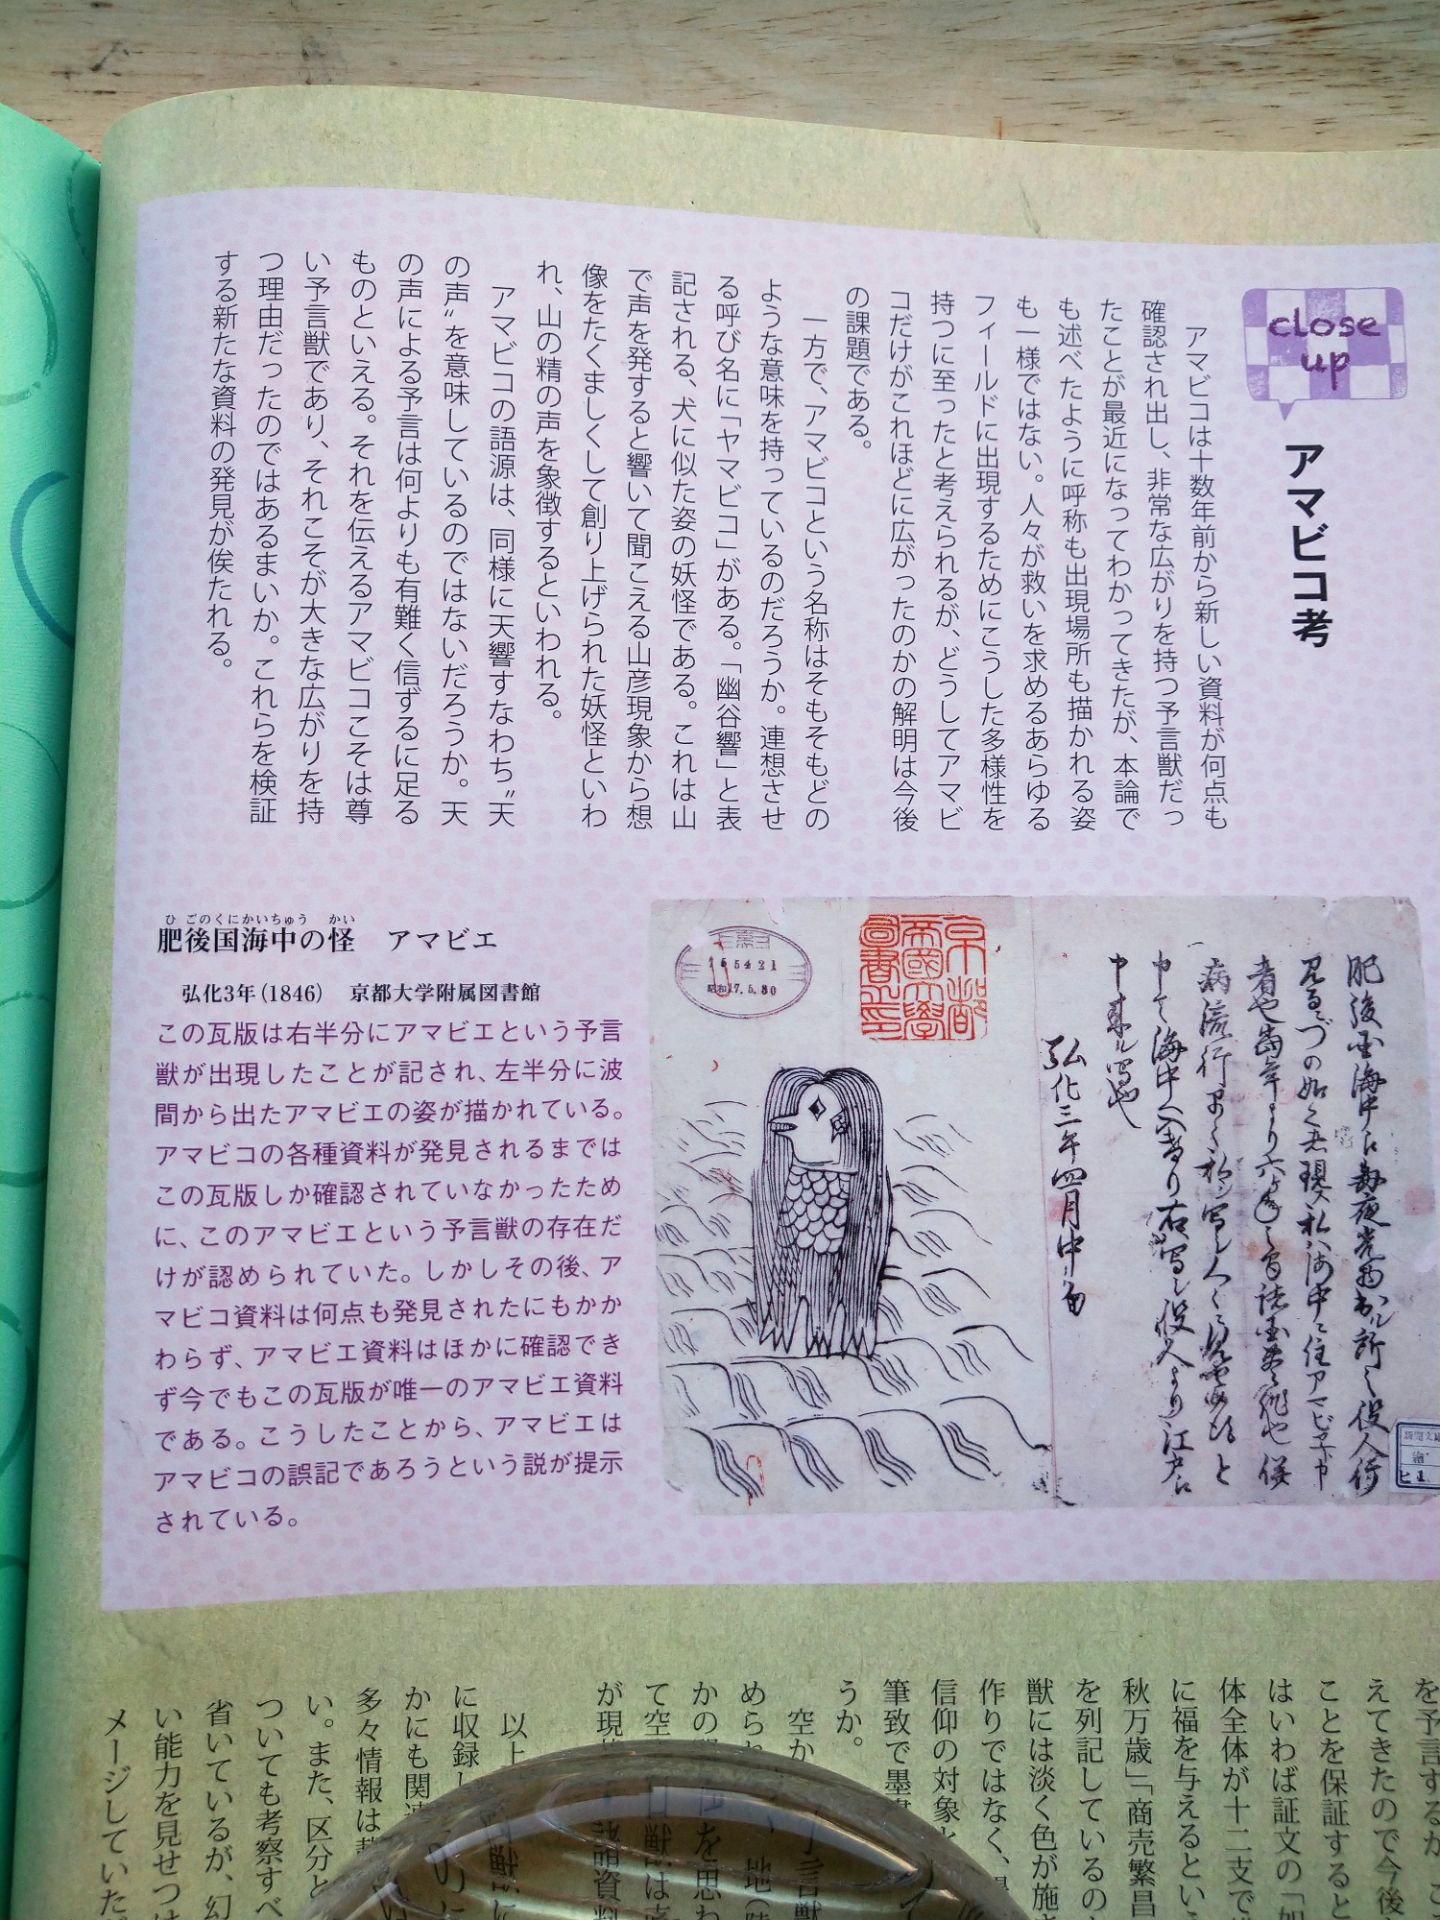 close
up
アマビコ考
アマビコは十数年前から新しい資料が何点も
確認され出し、非常な広がりを持つ予言獣だっ
たことが最近になってわかってきたが、本論で
も述べたように呼称も出現場所も描かれる姿
も一様ではない。人々が救いを求めるあらゆる
フィールドに出現するためにこうした多様性を
持つに至ったと考えられるが、どうしてアマビ
コだけがこれほどに広がったのかの解明は今後
の課題である。
一方で、アマビコという名称はそもそもどの
ような意味を持っているのだろうか。連想させ
る呼び名に「ヤマビコ」がある。「幽谷響」と表
記される、犬に似た姿の妖怪である。これは山
で声を発すると響いて聞こえる山彦現象から想
像をたくましくして創り上げられた妖怪といわ
れ、山の精の声を象徴するといわれる。
アマビコの語源は、同様に天響すなわち〝天
の声〟を意味しているのではないだろうか。天
の声による予言は何よりも有難く信ずるに足る
ものといえる。それを伝えるアマビコこそは尊
い予言獣であり、それこそが大きな広がりを持
つ理由だったのではあるまいか。これらを検証
する新たな資料の発見が俟たれる。
ひごのくにかいちゅう かい
肥後国海中の怪 アマビエ
弘化3年(1846) 京都大学附属図書館
この瓦版は右半分にアマビエという予言
獣が出現したことが記され、左半分に波
間から出たアマビエの姿が描かれている。
アマビコの各種資料が発見されるまでは
この瓦版しか確認されていなかったため
に、このアマビエという予言獣の存在だ
けが認められていた。しかしその後、ア
マビコ資料は何点も発見されたにもかか
わらず、アマビエ資料はほかに確認でき
ず今でもこの瓦版が唯一のアマビエ資料
である。こうしたことから、アマビエは
アマビコの誤記であろうという説が提示
されている。
京都
帝國大學
圖書之印
155421
昭和17.5.30
肥後国海中江毎夜光物出ル所之役人行
見るニづの如く者現ス私ハ海中ニ住アマビヱト申
者也當年より六ヶ年之間諸国豊作也併
病流行早々私ヲ写シ人々ニ見せ候得と
申て海中へ入けり右写シ役人より江戸江
申来ル写也
弘化三年四月中旬
を予言するか、こ
えてきたので今後
ことを保証すると
はいわば証文の「如
体全体が十二支で
に福を与えるとい
秋万歳」「商売繁昌
を列記しているの
獣には淡く色が施
作りではなく、
信仰の対象
筆致で墨
うか。
空か
めら
かの
て空
が現
以上
に収録
かにも関連
多々情報は
い。また、区分と
ついても考察すべ
省いているが、幻
い能力を見せつけ
メージしていた